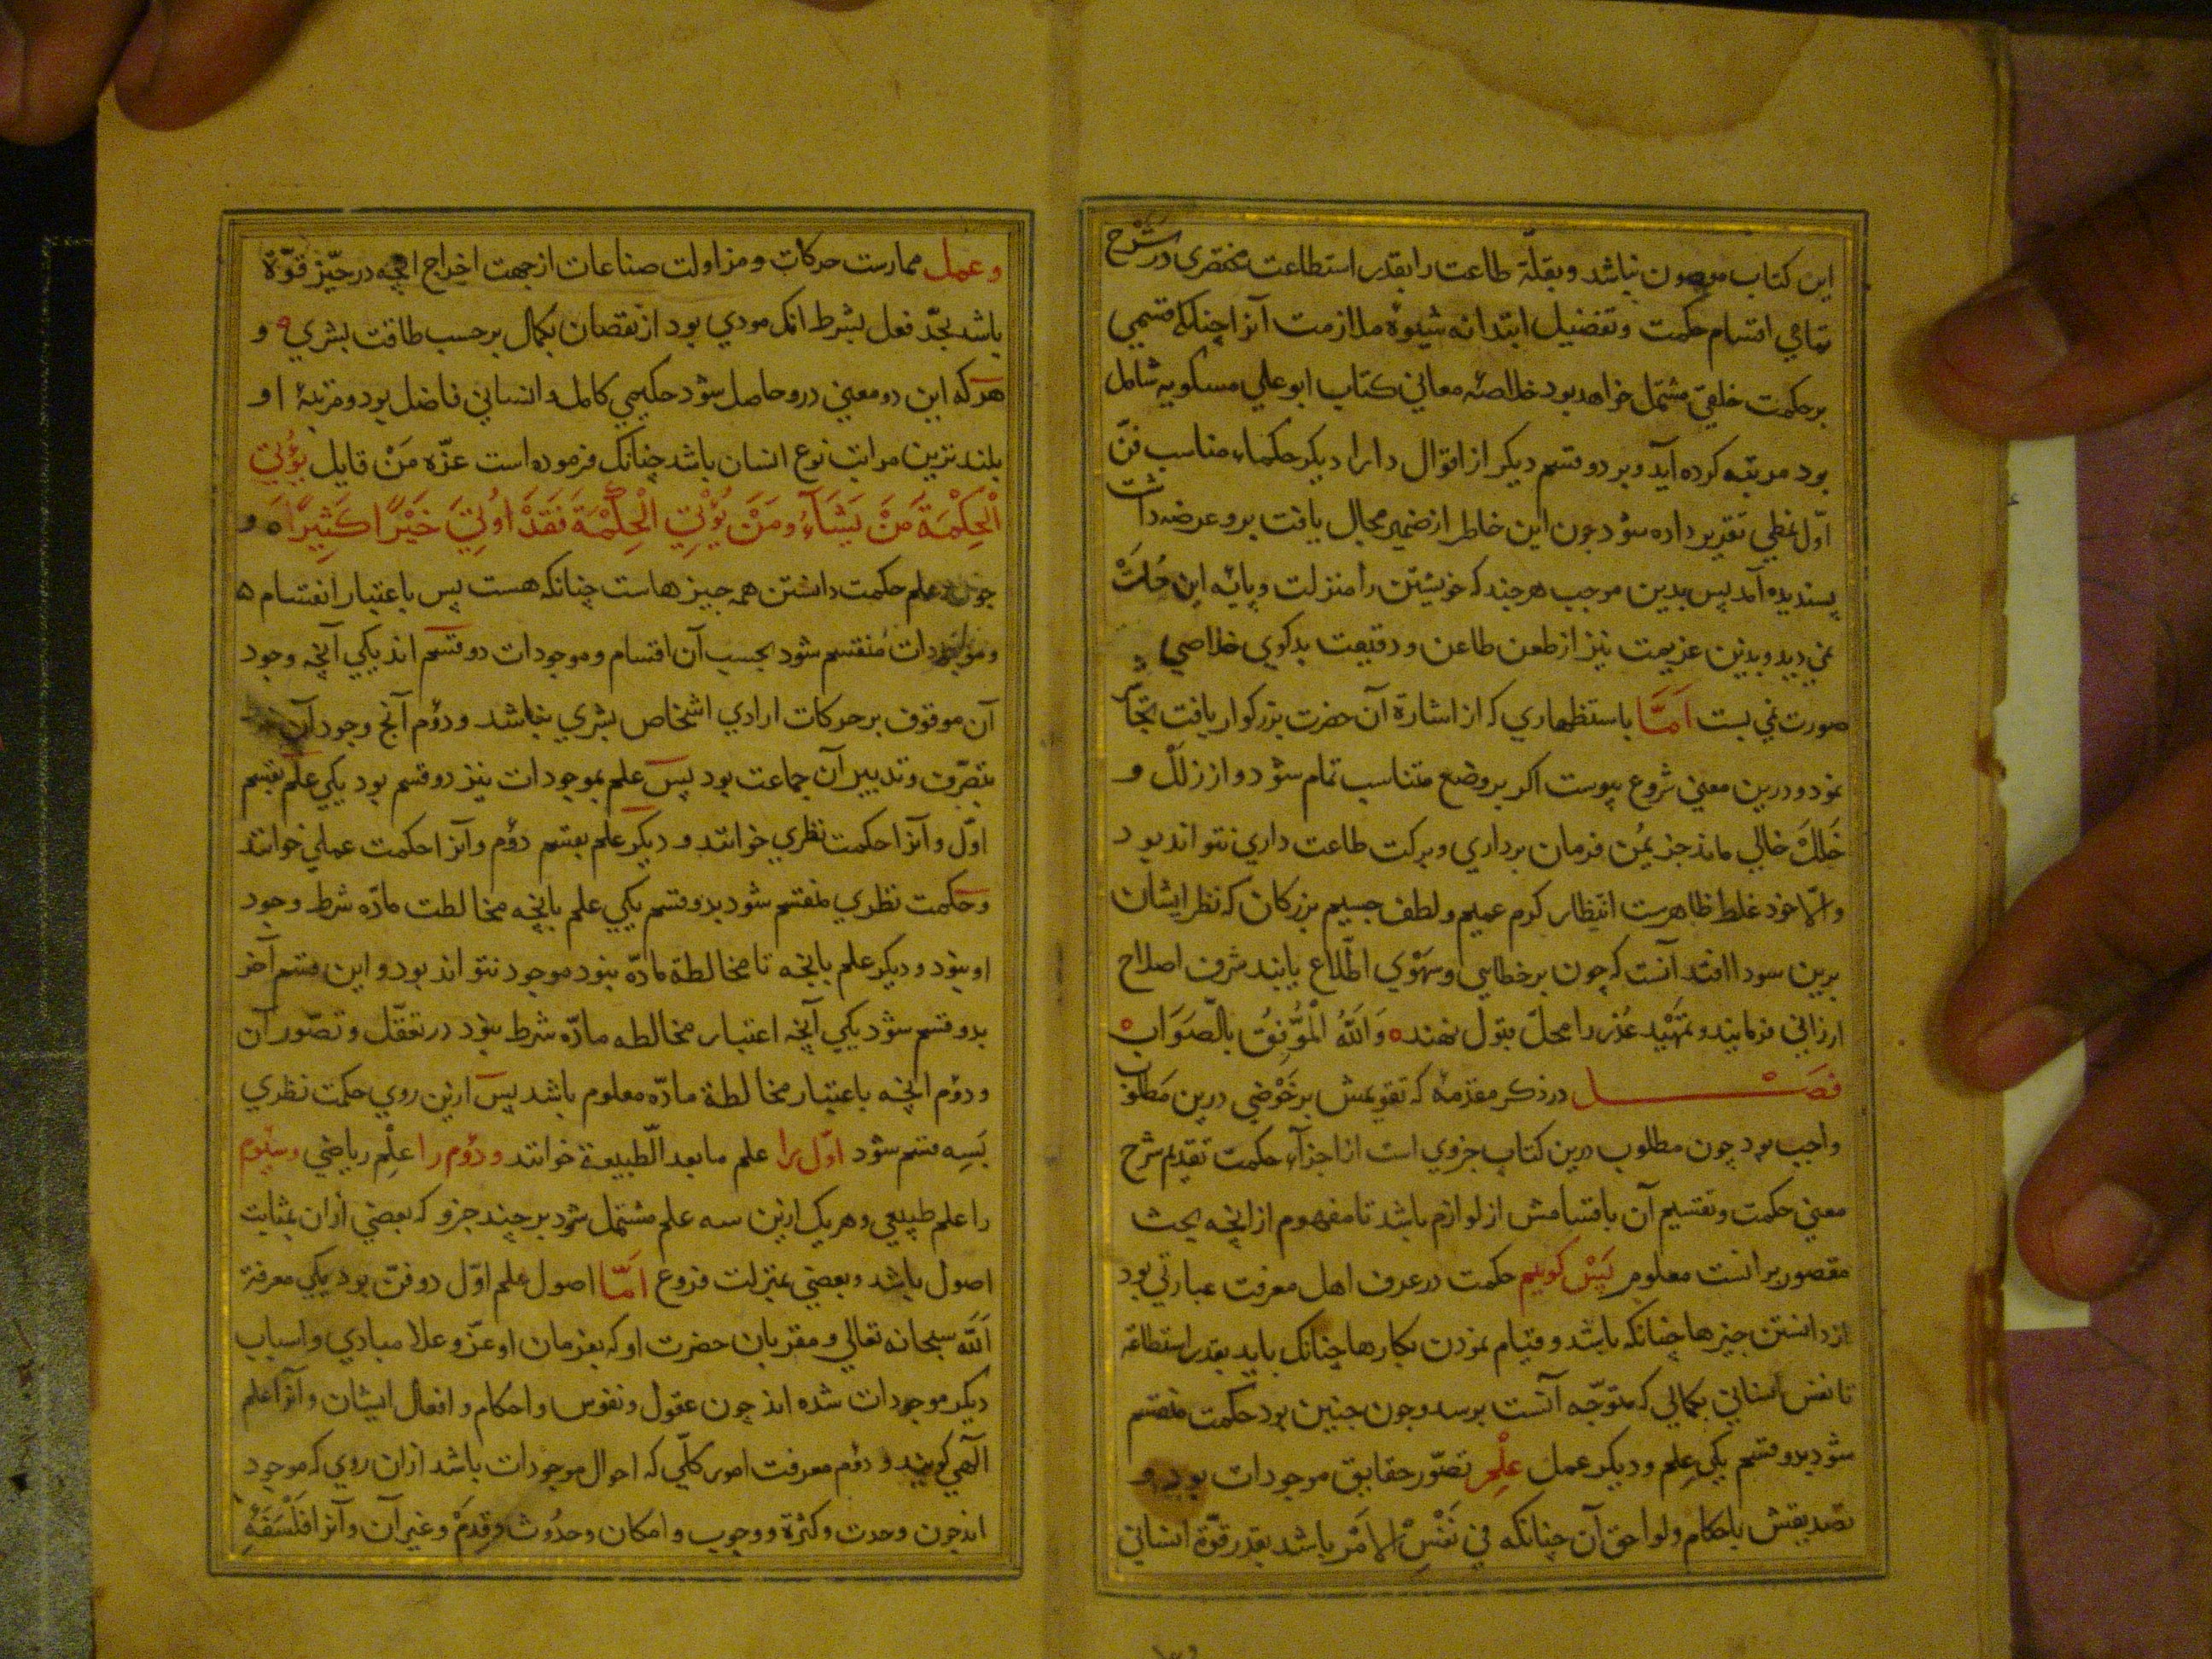 این کتاب موصون نباشد و بقلّة طاعت را بقدر استطاعت مختصری در شرح
تمامی اقسام حکمت و تفضیل ابتدا نه شیوهٔ ملازمت آنرا چنانکه قسمی
بر حکمت خلقی مشتمل خواهد بود خلاصهٔ معانی کتاب ابوعلی مسکویه شامل
بود مرتبه کرده آید و بر دو قسم دیکر از اقوال و ارا دیکر حکماء مناسب فنّ
اوّل نمطی تقدیر داده شود جون این خاطر از ضمیر مجال یافت برو عرضه داشت
پسندیده آمد پس بدین موجب هر جند که خویشتن را منزلت و پایهٔ این جرأت
نمی دید و بدین عزیمت نیز از طعن طاعن و وقیعت بدکوی خلاصی
صورت نمی بست اَمَّا باستظهاری که از اشارة آن حضرت بزرکوار یافت
نمود و درین معنی شروع پیوست اکر بر وضع متناسب تمام شود و از زلل و
خَلَل خالی ماند جز یُمن فرمان برداری و برکت طاعت داری نتواند بود
و الّا خود غلط ظاهرست انتظار کرم عمیم و لطف جسیم بزرکان که نظر ایشان
برین سودا افتد آنست که چون بر خطایی و سهوی اطّلاع یابند شرف اصلاح
ارزانی فرمایند و تمهید عُذر را محلّ قبول نهند وَاَللهُ الْمُوَفِّقُ بالصَّوَابِ
فصَــــل در ذکر مقدّمهٔ که تقویمش بر خَوْضی درین مَطلوب
واجب بود چون مطلوب درین کتاب جزوی است از اجزآءِ حکمت تقدیم شرح
معنی حکمت و تقسیم آن باقسامش از لوازم باشد تا مفهوم از انچه بحث
مقصور برانست معلوم پَسْ کوییم حکمت در عرف اهل معرفت عبارتی بود
از دانستن جیزها چنانکه باشد و قیام نمودن بکارها چنانک باید بقدر استطاعة
تا نفس انسانی بکمالی که متوجّه آنست برسد و جون جنین بود حکمت منقسم
شود بدو قسم یکی علم و دیکر عمل عِلْم تصّور حقایق موجودات بود و
تصدیقش باحکام و لواحق آن چنانکه فی نَفْسِ الاَمْر باشد بقدر قوّة انسانی
و عمل ممارست حرکات و مزاولت صناعات از جهت اخراج انچه در حیّز قوّة
باشد بحّد فعل بشرط انک مودی بود از نقصان بکمال بر حسب طاقت بشری و
هَر که این دو معنی درو حاصل شود حکیمی کامل و انسانی فاضل بود و مرتبهٔ او
بلندترین مراتب نوع انسان باشد چنانک فرموده است عزّه مَنْ قایل یؤتی
الْحِکْمَةَ مَنْ یَشَآءُ وَمَنْ یُؤْتِی الْحِکْمَةَ فَقَدْ اوُتِیَ خَیْرًا کَثِیرًا و
جون علم حکمت دانشتن همه جیزهاست چنانکه هست پس باعتبار انقسام
موجودات مُنقسم شود بحسب آن اقسام و موجودات دو قسم اند یکی آنچه وجود
آن موقوف بر حرکات ارادی اشخاص بشری نباشد و دوم آنچ وجود آن
بتصرّف و تدبیر آن جماعت بود پس علم بموجودات نیز دو قسم بود یکی علم بقسم
اوّل و آنرا حکمت نظری خوانند و دیکر علم بقسم دوم و آنرا حکمت عملی خوانند
و حکمت نظری منقسم شود بدو قسم یکی علم بانچه مخالطت مادّه شرط وجود
او بنود و دیکر علم بانچه تا مخالطة مادّه بنود موجود نتواند بود و این قسم آخر
بدو قسم شود یکی آنچه اعتبار مخالطه مادّه شرط بنود در تعقّل و تصّور آن
و دوّم انچه باعتبار مخالطة مادّه معلوم باشد پس ازین روی حکمت نظری
بَسِه قسم شود اوّل را علم ما بعد الّطبیعة خوانند و دوّم را عِلْم ریاضی و سیوم
را علم طبیعی و هر یک ازین سه علم مشتمل شود بر چند جزو که بعضی ازان بمثابت
اصول باشد و بعضی بمنزلت فروع اَمَّا اصول علم اوّل دو فنّ بود یکی معرفة
اَللّه سبحانه تعالی و مقربان حضرت او که بفرمان او عزّ و علا مبادی و اسباب
دیکر موجودات شده اند چون عقول و نفوس و احکام و افعال ایشان و آنرا علم
الَهی کویند و دوّم معرفت امور کلّی که احوال موجودات باشد ازان روی که موجود
اند چون وحدت و کثرة و وجوب و امکان و حدُوث و قِدَم و غیر آن و آنرا فَلْسَفَه